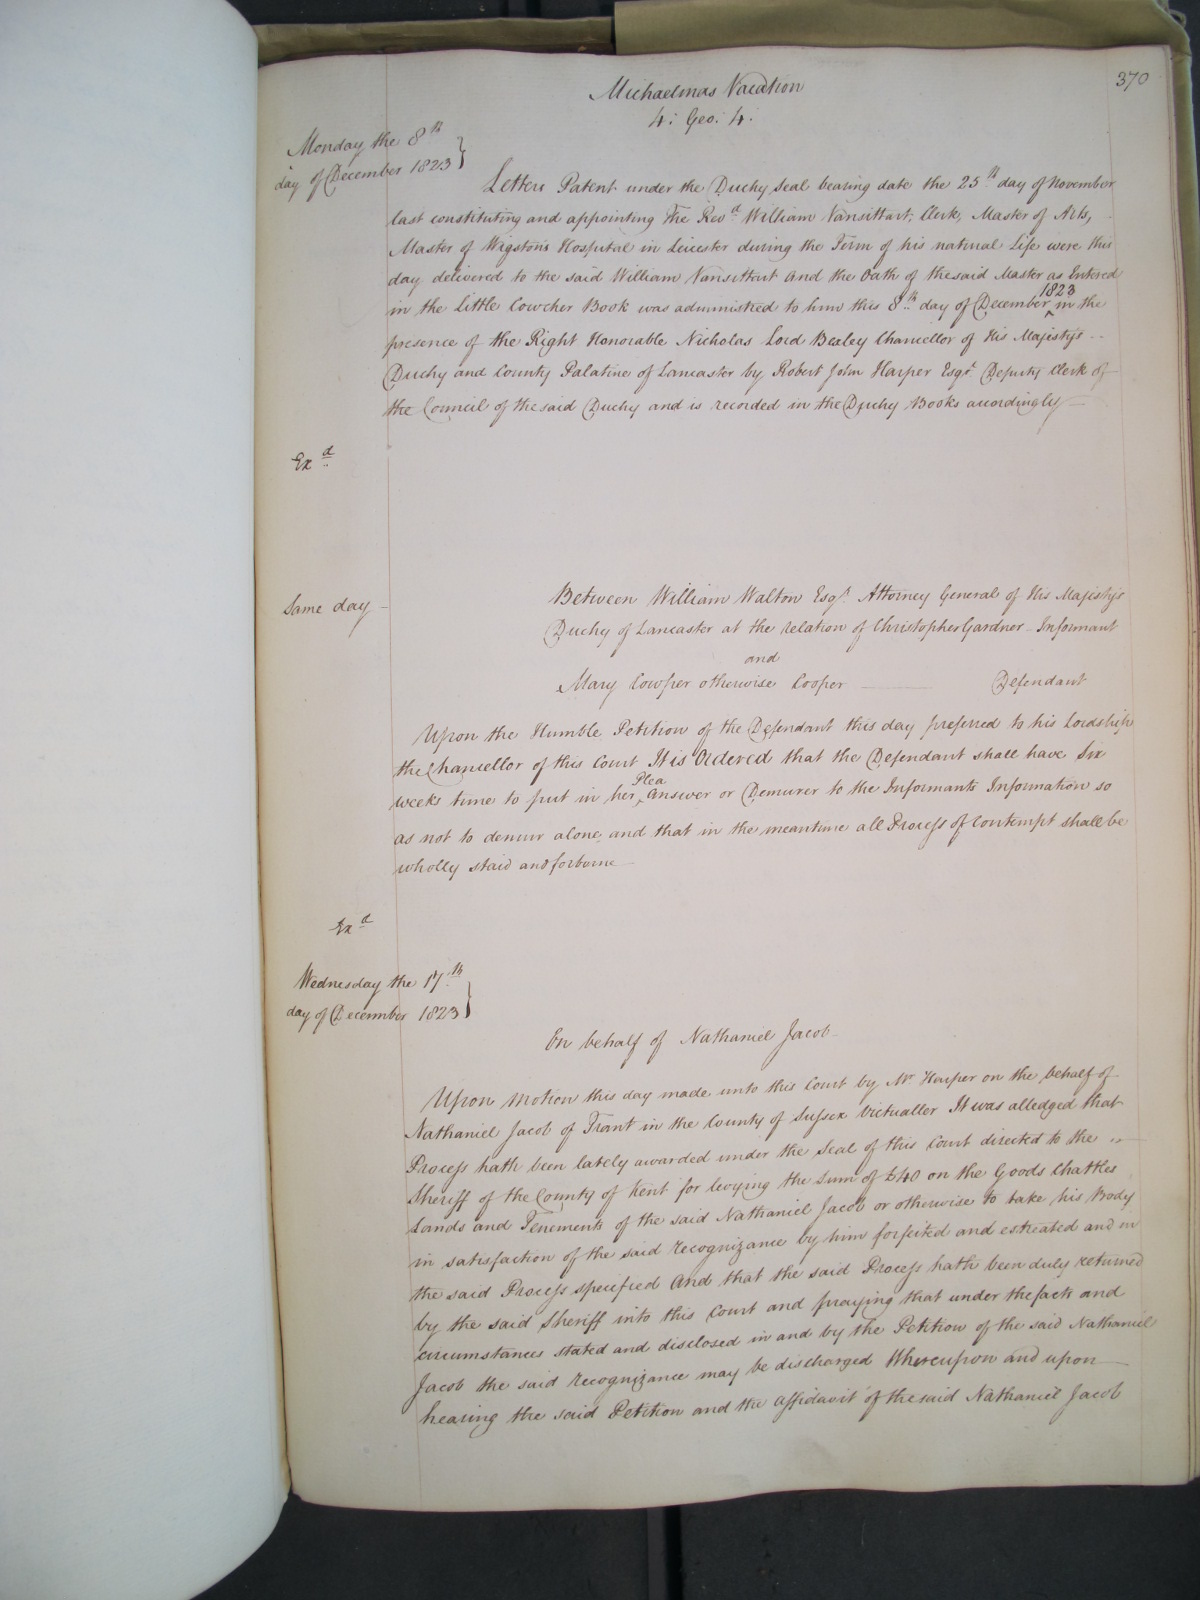 370
Michaelmas Vacation
4: Geo: 4:
Monday the 8th
day of December 1823
Letters Patent under the Duchy Seal bearing date the 25th day of November
last constituting and appointing The Revd William Vansittart, Clerk, Master of Arts,
Master of Wigston's Hospital in Leicester during the Term of his natural Life were this
day delivered to the said William Vansittart And the Oath of the said Master as Entered
in the Little Cowcher Book was administred to him this 8th day of December 1823 in the
presence of the Right Honorable Nicholas Lord Bexley Chancellor of His Majesty's
Duchy and County Palatine of Lancaster by Robert John Harper Esqr Deputy Clerk of
the Council of the said Duchy and is recorded in the Duchy Books accordingly
Exd
Same day
Between William Walton Esqr Attorney General of His Majesty's
Duchy of Lancaster at the relation of Christopher Gardner Informant
and
Mary Cowper otherwise Cooper Defendant
Upon the Humble Petition of the Defendant this day preferred to his Lordship
the Chancellor of this Court It is Ordered that the Defendant shall have Six
weeks time to put in her Plea Answer or Demurrer to the Informants Information so
as not to demurr alone and that in the meantime all Process of Contempt shall be
wholly staid and forborne
Exd
Wednesday the 17th
day of December 1823
On behalf of Nathaniel Jacob
Upon Motion this day made unto this Court by Mr Harper on the behalf of
Nathaniel Jacob of Frant in the County of Sussex Victualler It was alledged that
Process hath been lately awarded under the Seal of this Court directed to the
Sheriff of the County of Kent for levying the Sum of £40 on the Goods Chattles
Lands and Tenements of the said Nathaniel Jacob or otherwise to take his Body
in satisfaction of the said recognizance by him forfeited and estreated and in
the said Process specified And that the said Process hath been duly returned
by the said Sheriff into this Court and praying that under the facts and
circumstances stated and disclosed in and by the Petition of the said Nathaniel
Jacob the said recognizance may be discharged Whereupon and upon
hearing the said Petition and the affidavit of the said Nathaniel Jacob